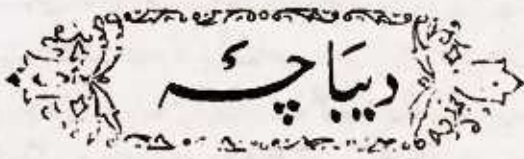 دیبَاچہٴ